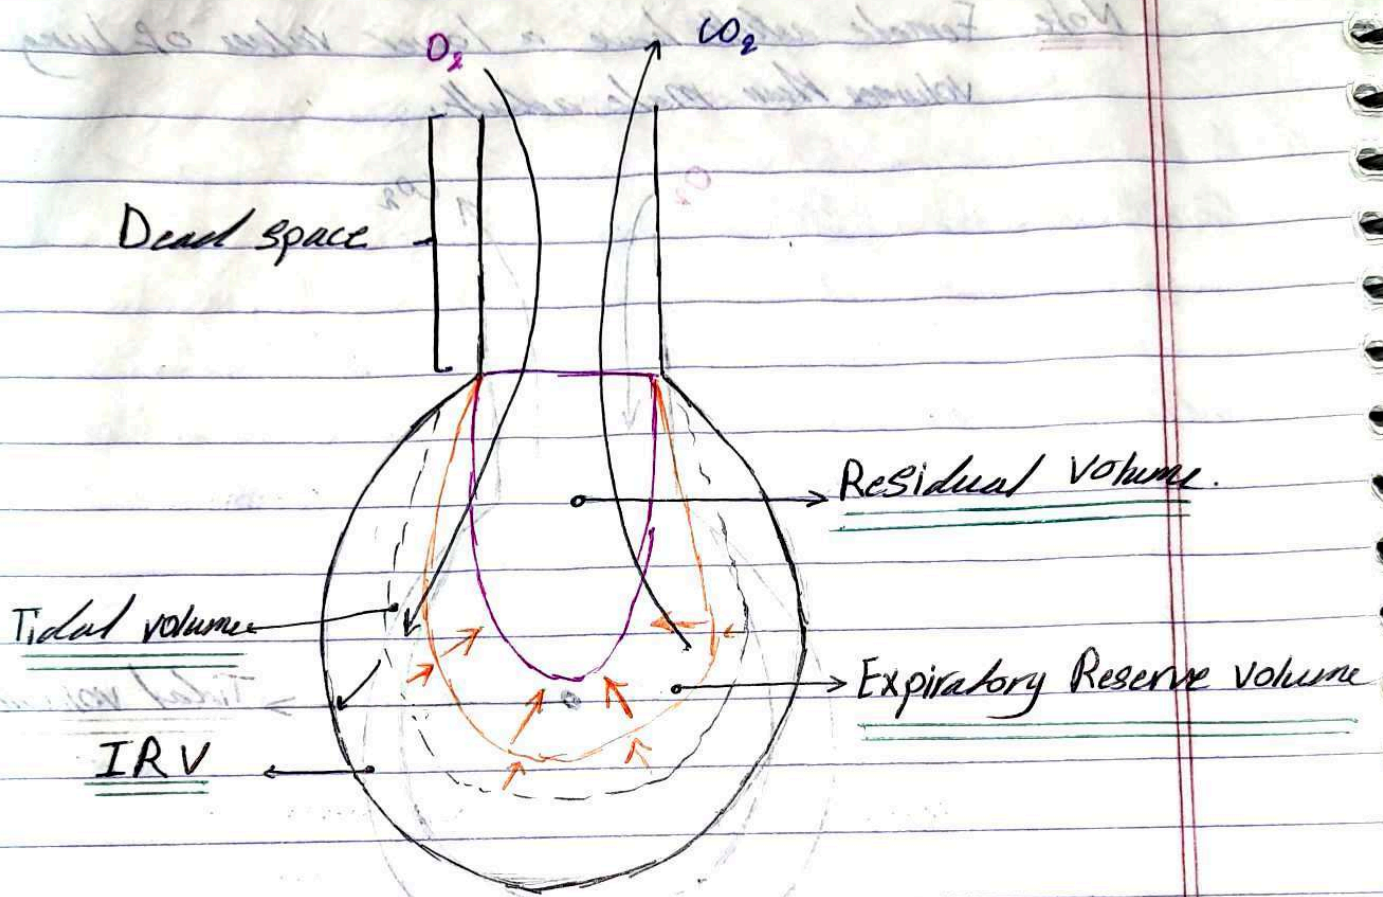 O₂
CO₂
Dead space
Residual volume.
Tidal volume
Expiratory Reserve volume
IRV